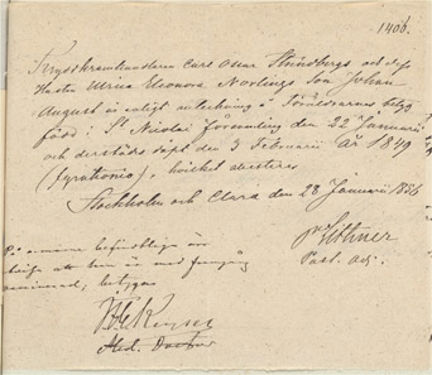 1406.
Kryddkramhandlaren Carl Oscar Strindbergs och dess
Hustru Ulrica Eleonora Norlings Son Johan
August är enligt anteckning i Föräldrarnes betyg
född i St Nicolai församling den 22 Januarii
och derstädes döpt den 3 Februarii År 1849
(fyrationio), hvilket attesteras
Stockholm och Clara den 28 Januarii 1856
Past. Adj.
På
att han är med
betygar
Med. Doctor